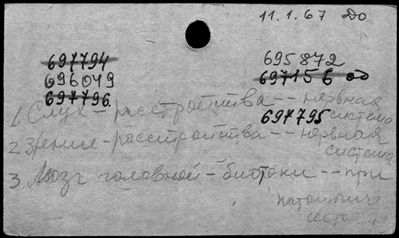 11.1.67 До
697794
695872
696049
697156
697796
1. Слух - расстройства -- нервная система
697795
2. Зрение - расстройства -- нервная система
3. Мозг головной - биотоки -- при